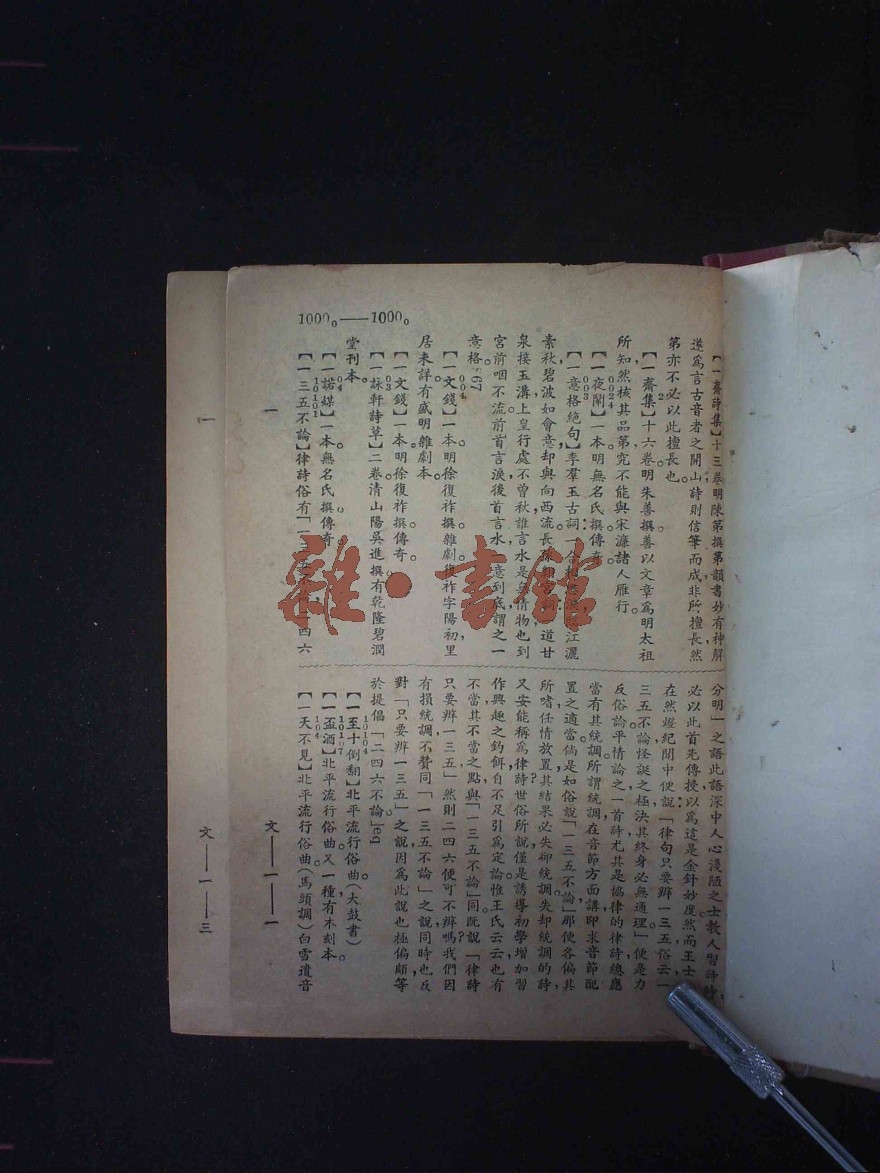 1000。——1000。
【一齋詩集】十三卷明陳第撰第韻書妙有神解
遂爲言古音者之開山詩則信筆而成非所擅長然
第亦不必以此擅長也。
2
【一齋集】十六卷明朱善撰善以文章爲明太祖
所知然核其品第究不能與宋濂諸人雁行。
0024
【一夜鬧】一本明無名氏撰傳奇。
003
【一意格絕句】李羣玉古詞：「一合相思淚臨江灑
素秋碧波如會意却與向西流長孫翱宮詞：一道甘
泉接玉溝上皇行處不曾秋誰言水是無情物也到
宮前咽不流前首言淚後首言水一意到底謂之一
意格。c67
004
【一文錢】一本明徐復祚撰雜劇復祚字陽初里
居未詳有盛明雜劇本。
【一文錢】一本明徐復祚撰傳奇。
03
【一詠軒詩草】二卷清山陽吳進撰有乾隆碧澗
堂刊本。
04
【一諾媒】一本無名氏撰傳奇。
10101
【一三五不論】律詩俗有「一三五不論二四六
分明」之語此語深中人心淺陋之士教人習詩時，
必以此首先傳授以爲這是金針妙度然而王士
在然燈紀聞中便說：「律句只要辨一三五俗云一
三五不論怪誕之極決其終身必無通理」便是力
反俗論平情論之一首詩尤其是協律的律詩總應
當有其統調所謂統調在音節方面講卽求音節配
置之適當倘是如俗說「一三五不論」那便各偏其
所嗜任情放置其結果必失卻統調失却統調的詩，
又安能稱爲律詩？世俗所說僅是誘導初學增加習
作興趣之釣餌自不足引爲定論惟王氏云云也有
不當其不當之點與「一三五不論」同旣說「律詩
只要辨一三五」然則二四六便可不辨嗎？我們因
有損統調不贊同「一三五不論」之說同時也反
對「只要辨一三五」之說因爲此說也極偏頗等
於提倡「二四六不論」eq
10104
【一至十倒翻】北平流行俗曲（大鼓書）
10107
【一盃酒】北平流行俗曲。又一種有木刻本。
104
【一天不見】北平流行俗曲（馬頭調）白雪遺音
一
文——一——一
一
文——一——三
雜·書館